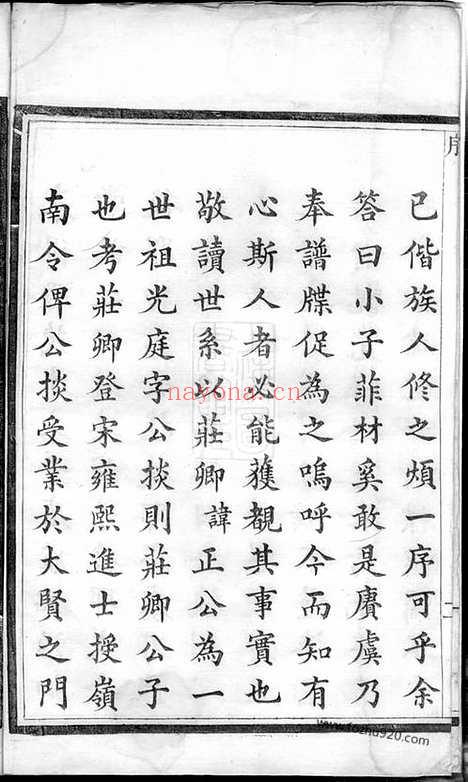 序
已偕族人修之煩一序可乎余
答曰小子菲材奚敢是賡虞乃
奉譜牒促為之嗚呼今而知有
心斯人者必能獲覩其事實也
敬讀世系以莊卿諱正公為一
世祖光庭字公掞則莊卿公子
也考莊卿登宋雍熙進士授嶺
南令俾公掞受業於大賢之門
nayona.cn
www.fozhu920.com